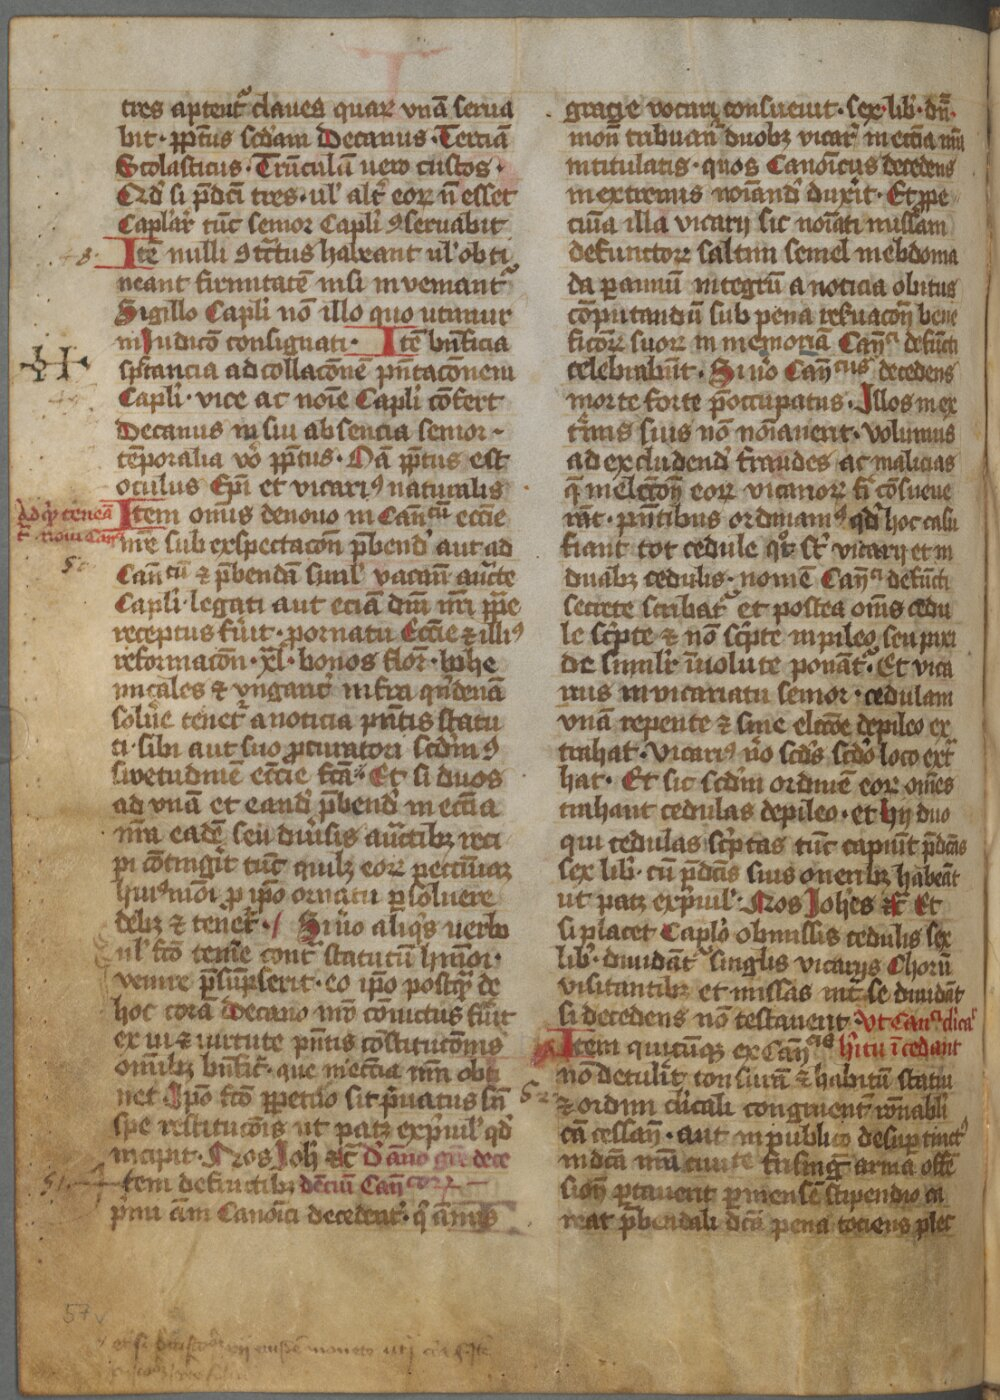 tres aptent᷒ claues quaꝝ vnā serua
bit · p̄pt͛us scd̄am Decanus · Terciā
Scolasticus · Trūculū uero custos ·
Qd̛ si p̄dc̄i tres · ul̓ alt̓ eoꝝ n̄ esset
Capl̓ar̓ tūc semor Capl̓i ꝯseruabit
Itē nulli ꝯtc̄tus habeant ul̓ obti
neant firmitatē nisi inueniant᷒
Sigillo Capli nō illo quo utimur
in Judicō consignati · Itē bn̄ficia
spc̄tancia ad collacōnē pn̄tacōnem
Capl̓i · vice ac noīe Capl̓i cōfert
Decanus in siu absencia senior ·
tēporalia v̓o p̄pt͛us · Qā p̄pt͛us est
oculus Ep̄i et vicariꝯ naturalis
Ad qd̓ teneā
t᷒ noui Can̄ci
Item om̄is denouo in Can̄cū eccīe
nr̄e sub exspectacōn p̄bend̓ aut ad
Can̄cū ⁊ p̄bendā siml̓ vacan̄ auc̄te
Capl̓i · legati aut eciā dn̄i nr̄i pp̄e
receptus fu̓it · p ornatu Eccīe ⁊ illiꝯ
reformacōn · xl̓ · bonos flor̓ · bohe
micales ⁊ vngaric̓ infra qn̓denā
solue̓ tenet᷒ a noticia pn̄tis statu
ti · sibi aut suo ꝓcuratori scd̄m ꝯ
swetudinē eccīe fc̄ā · Et si duos
ad vnā et eand̓ p̄bend̓ in ecc̄ia
nr̄a eadē seu diu̓sis auc̄tibꝫ reci
pi cōtingit̓ tūc quilꝫ eoꝝ peccūiaꝫ
huiꝯmōi ꝓ ip̄o ornatu ꝑsoluere
debꝫ ⁊ tenet᷒ · Siu̓o aliq̓s uerbo
ul̓ fc̄o teme̓ cont̓ statutū hmōi ·
venire p̄sūpserit · eo ip̄o postq̄ȝ de
hoc corā Decano nr̄o cōuictus fu̓it
ex ui ⁊ uirtute pn̄tis cōstitucōnis
om̄ibꝫ bn̄fic̓ · que in ecc̄ia nr̄a obti
net Ip̄o fc̄o ꝑpetuo sit p̓uatus sn̄
spe restitucōis ut patꝫ ex p̓uil̓ qd̓
incipit · Nos Joh̓ ⁊c̄ D̓ āno gr̄e dece
tem defūctibꝫ dēciū Can̄coꝝ
p̓mi cīm Canōici decedent᷒ · q̓ annus
48
51
gracie vocari consueuit · sex · lib̓ · dn̄ ·
mon̄ tribuan̄ duobꝫ vicar̓ in ecc̄ia nr̄a
intitulatis · quos Canōicus decedens
in extremis noīand̓ duxit̓ · Et ꝓpe
cuīa illa vicarij sic noīati missam
defunctoꝝ saltim semel in ebdoma
da ꝑ annū integrū a noticia obitus
cōputandū sub pena reuacōn̄ bene
ficoꝝ suoꝝ in memoriā Can̄ci defūcti
celebrabūt · Siu̓o Can̄cus decedens
morte forte p̄occupatus · Illos in ex
tr̓mis suis nō noīauerit · volumus
ad excludend̓ fraudes ac malicias
q̄ in elecc̄on̄ eoꝝ vicarioꝝ fi̓ cōsueue
rāt · pn̄tibus ordinamꝯ qd̓ hoc casu
fiant tot cedule qt̓ st̓ vicarij et in
duabꝫ cedulis · nomē Can̄ci defūcti
secrete scribat᷒ et postea om̄s cedu
le sc̓pte ⁊ nō sc̓pte in pileo seu pixi
de simili̓ īuolute ponāt᷒ · Et vica
rius in vicariatu senior · cedulam
vnā repente ⁊ sine elecc̄oe de pileo ex
trahat · Vicariꝯ v̓o scd̓s scd̓o loco ext̓
hat · Et sic scdm ordinē eoꝝ om̄es
trahant cedulas de pileo · et hij duo
qui cedulas sc̓ptas tūc capiūt p̄dc̄as
sex lib̓ · cū p̄dc̄is suis oneribꝫ habeāt
ut patꝫ ex p̓uil̓ · Nos Joh̓es ⁊c̄ Et
si placet Caplo̓ obmissis cedulis sex
lib̓ · diuidāt᷒ singlis vicarijs Chorū
visitantibꝫ et missas int̓ se diuidāt
si decedens nō testauerit Vt Can̄ci dica᷒
h̓itū īcedant
Item quicūqꝫ ex Can̄cis
nō detulit̓ tonsurā ⁊ habitū statui
⁊ ordini cl̓icali congruent̓ rōnabili
cā cessan̄ · aut in publico desuꝑ tinct̓
in dc̄a nr̄a ciuite frīsing̓ arma offē
sion̄ ꝑtauerit ꝑ mensē stipendio ca
reat p̄bendali dc̄s pena tociens plec
52
57v